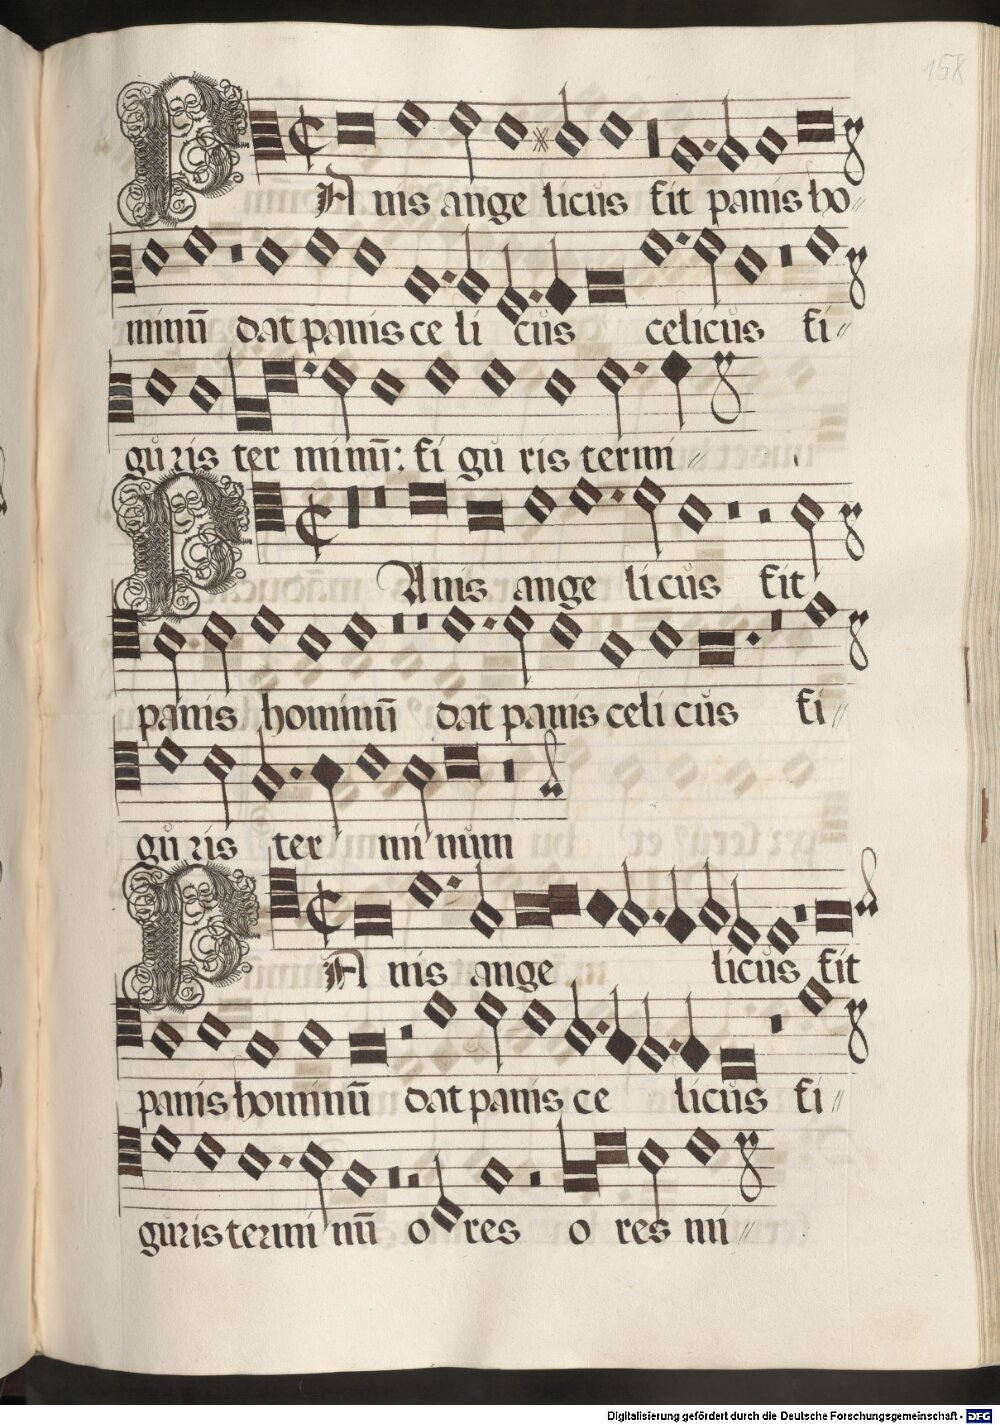 158
PAnis angelicus fit panis ho〃
minū dat panis celicus celicus fi〃
guris terminū: figuris termi〃
PAnis angelicus fit
panis hominū dat panis celicus fi〃
guris terminum
PAnis angelicus fit
panis hominū dat panis celicus fi〃
guris terminū o res o res mi〃
Digitalisierung gefördert durch die Deutsche Forschungsgemeinschaft - DFG